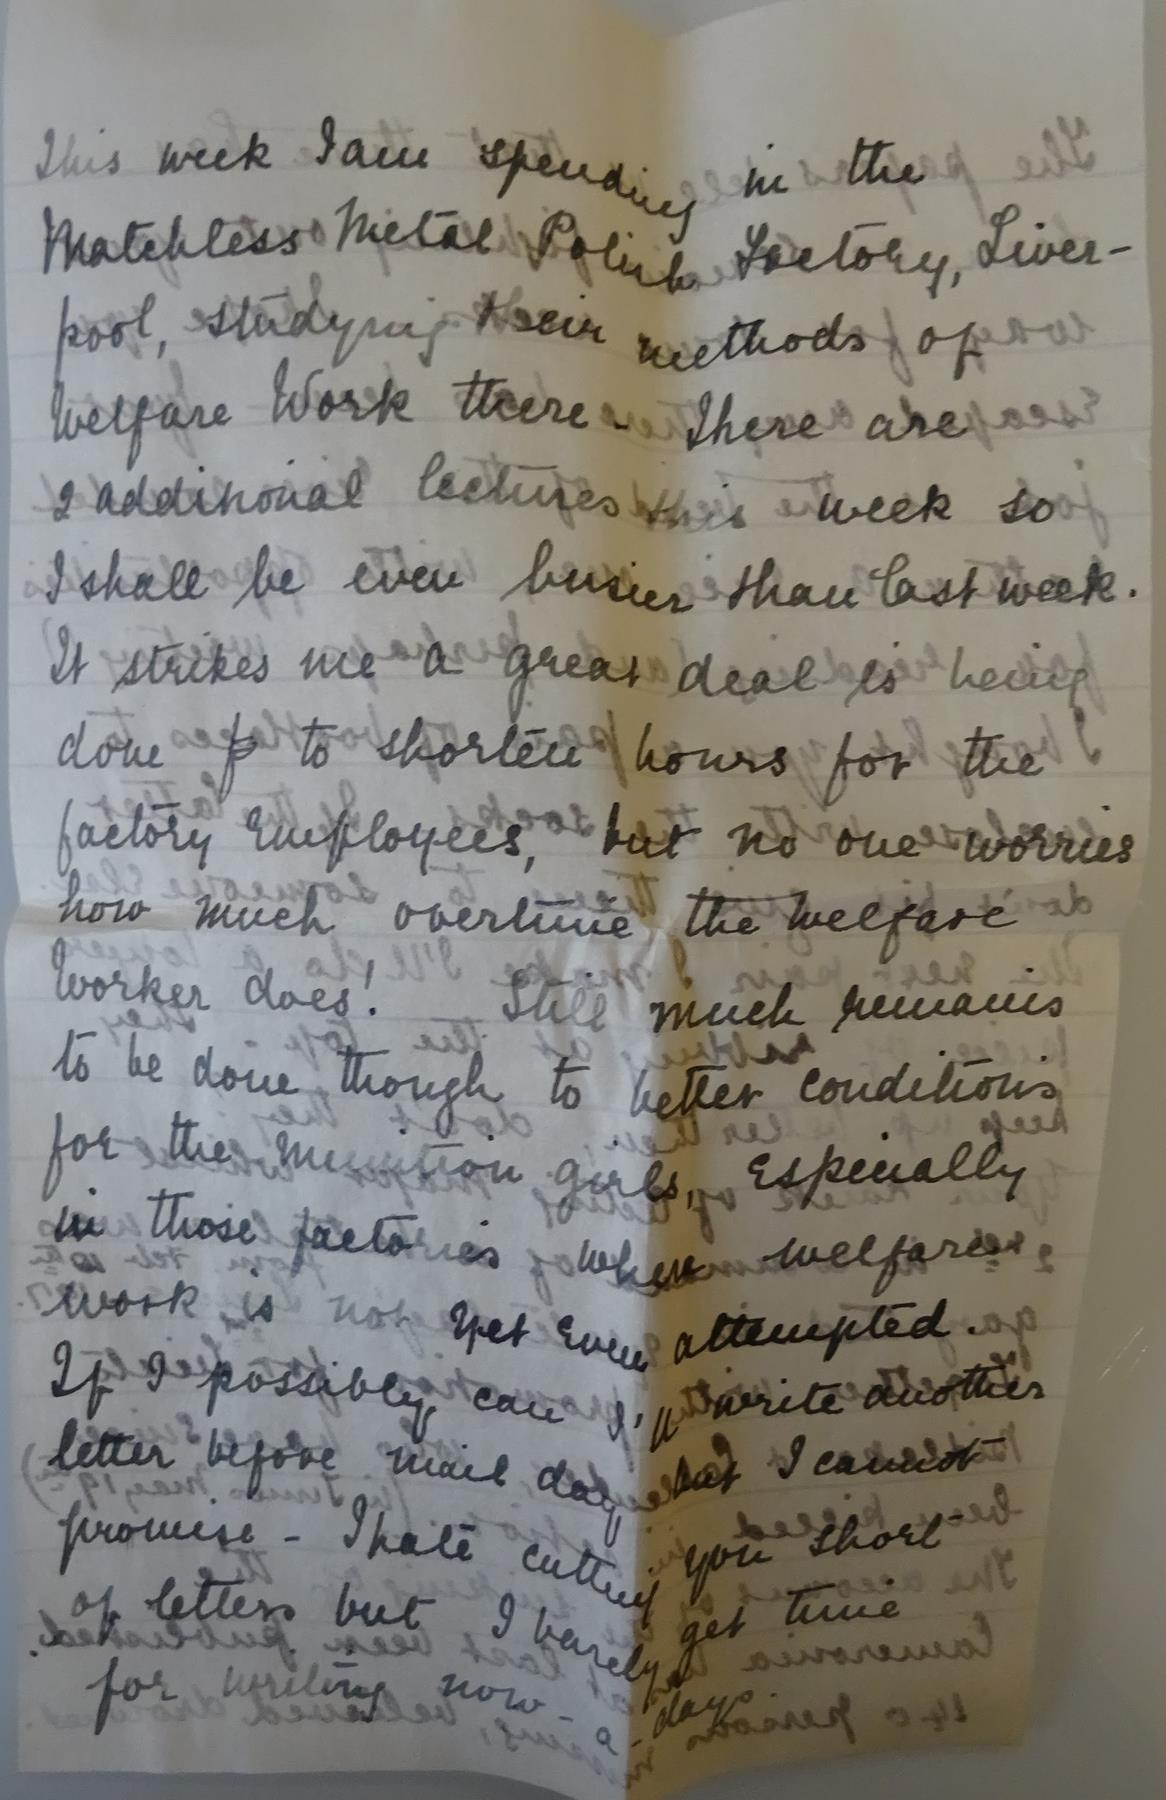 This week I am spending in the
Matchless Metal Polish Factory, Liver-
pool, studying their methods of
Welfare Work there - There are
2 additional lectures this week so
I shall be even busier than last week.
It strikes me a great deal is being
done to shorten hours for the
factory employees, but no one worries
how much overtime the Welfare
Worker does! Still much remains
to be done though to better conditions
for the munition girls, especially
in those factories where welfare
work is not yet even attempted.
If I possibly can I'll write another
letter before mail day but I cannot
promise - I hate cutting you short
of letters but I barely get time
for writing now - a - days